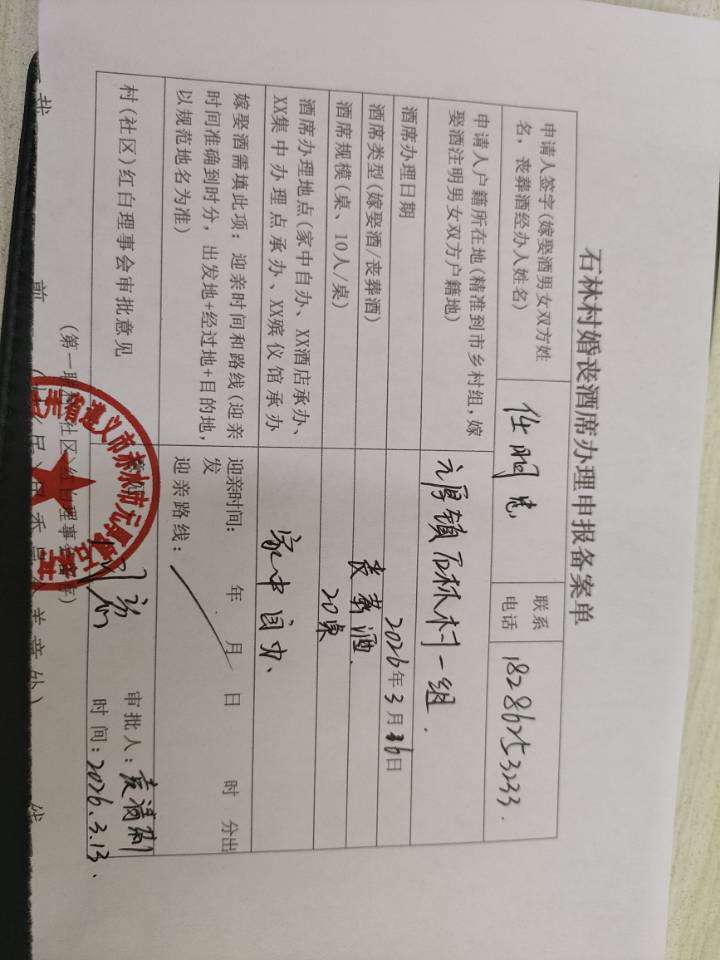 石林村婚丧酒席办理申报备案单
申请人签字(嫁娶酒男女双方姓
名，丧葬酒经办人姓名)
任明忠
联系
电话
18286253233.
申请人户籍所在地(精准到市乡村组，嫁
娶酒注明男女双方户籍地)
元厚镇石林村一组.
酒席办理日期
2026年3月16日
酒席类型(嫁娶酒/丧葬酒)
丧葬酒
酒席规模(桌、10人/桌)
20桌
酒席办理地点(家中自办、XX酒店承办、
XX集中办理点承办、XX殡仪馆承办
家中自办、
嫁娶酒需填此项：迎亲时间和路线(迎亲
时间准确到时分，出发地+经过地+目的地，
以规范地名为准)
迎亲时间： 年 月 日 时 分出
发
迎亲路线：
村(社区)红白理事会审批意见
同意
审批人：袁满刚
时间：2026.3.13、
省遵义市赤水市元厚镇石林村
(第一联 社区)红白理事会
裁 前 线